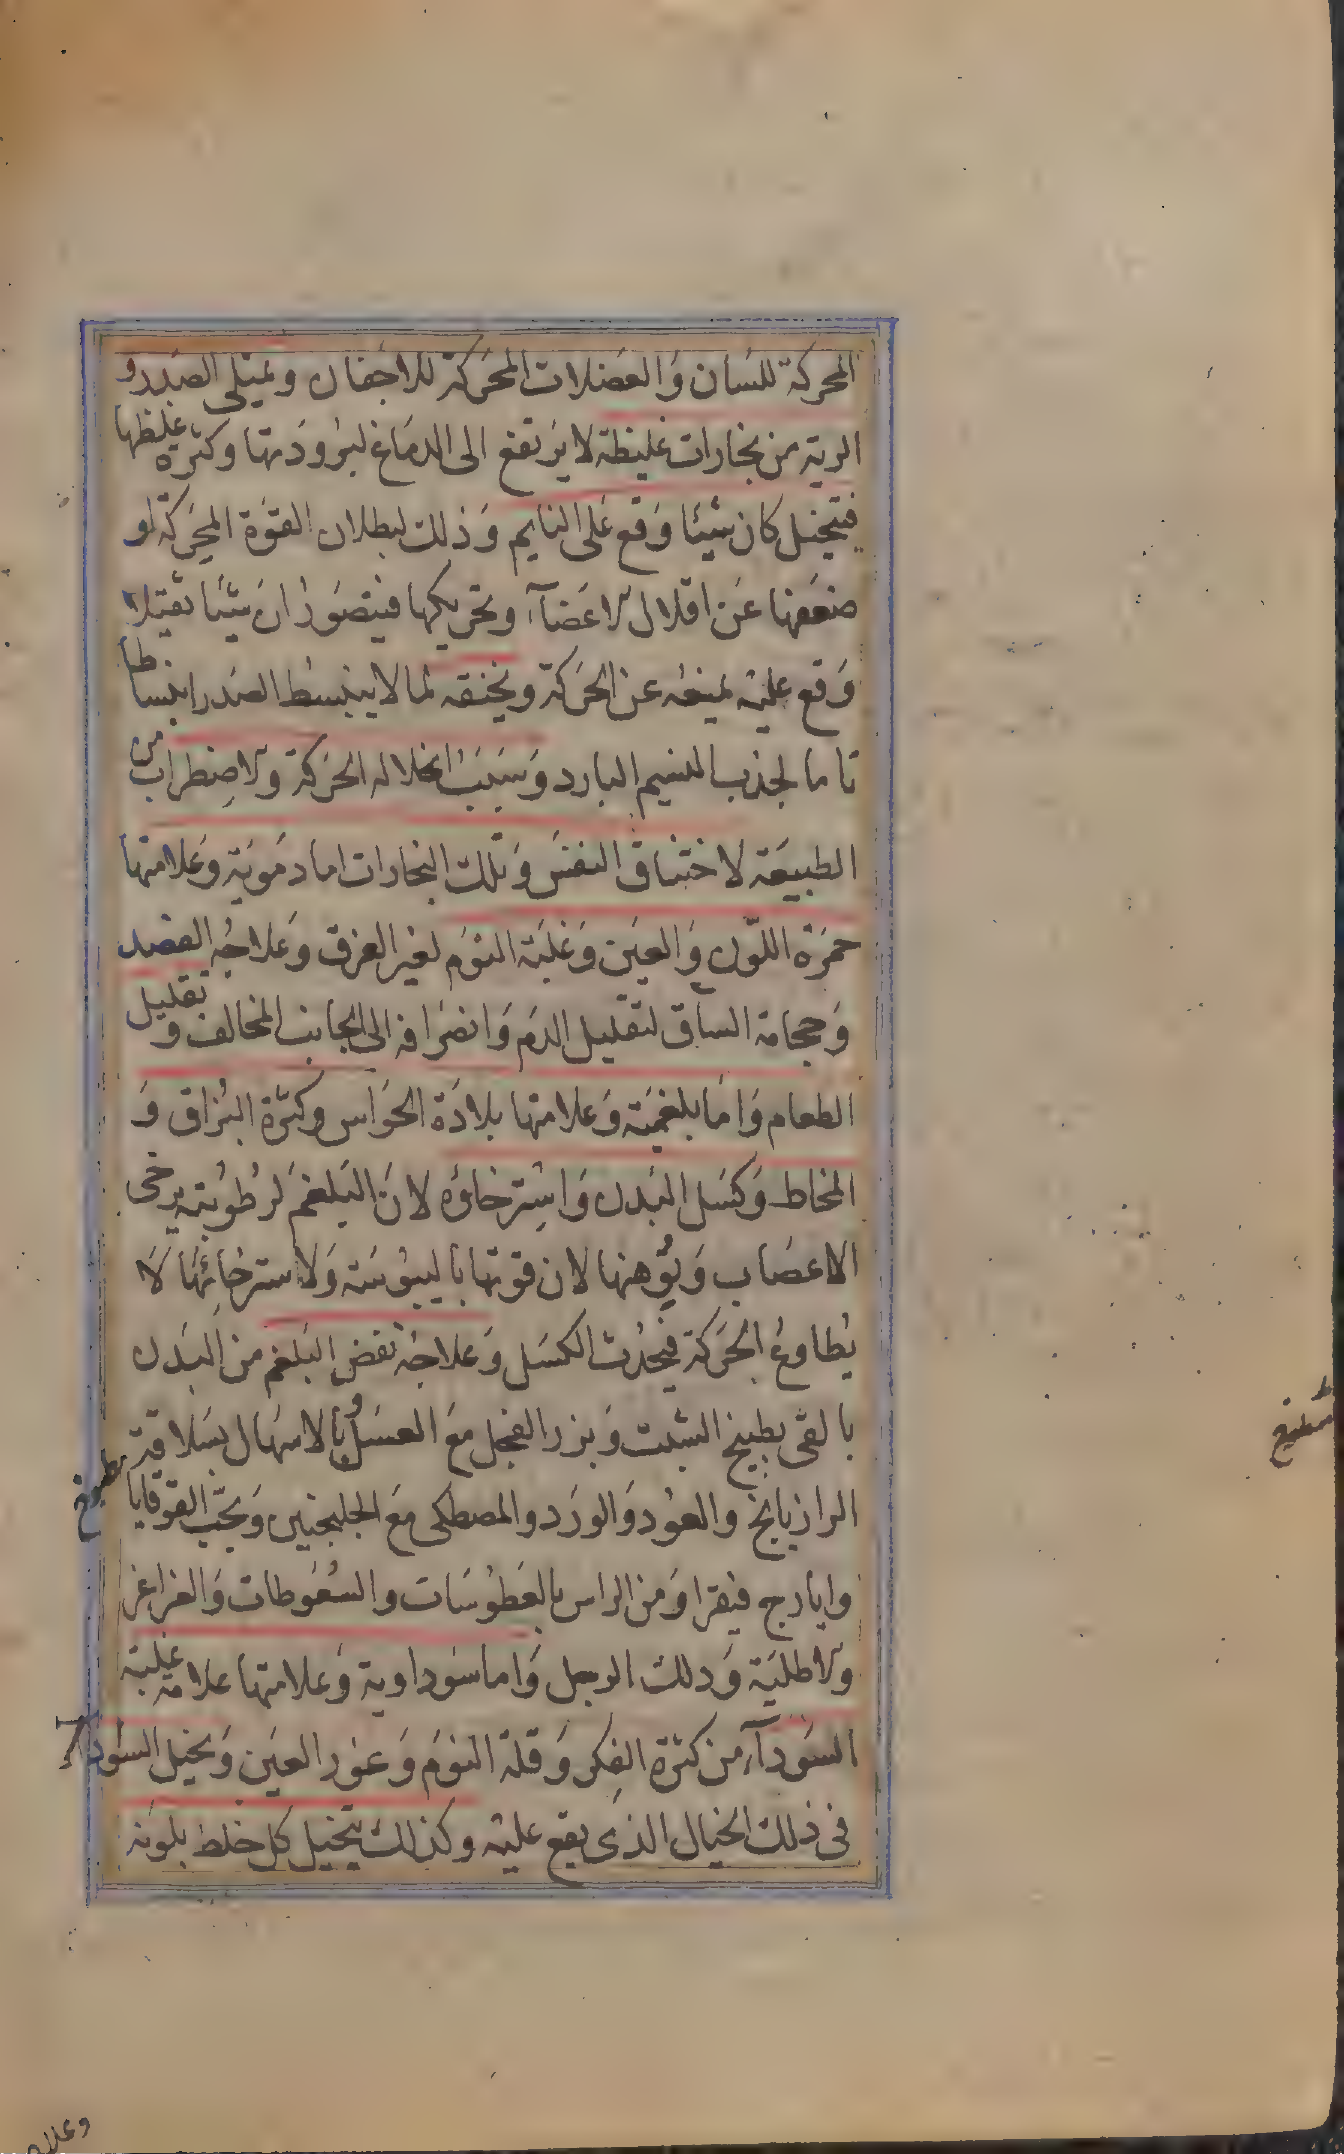 المحركة للسان والعضلات المحركة للاجفان ويمتلى الصدر و
الرية من بخارات غليظة لا يرتفع الى الدماغ لبرودتها وكثرة غلظها
فيتخيل كان شيئا وقع على النايم وذلك لبطلان القوة المحركة او
ضعفها عن اقلال الاعضآء وتحريكها فيتصور ان شيئا ثقيلا
وقع عليه يمنعه عن الحركة ويخنقه لما لا ينبسط الصدر انبساطا
تاما لجذب النسيم البارد وسبب انحلاله الحركة والاضطراب من
الطبيعة لاختناق النفس وتلك البخارات اما دموية وعلامتها
حمرة اللون والعين وغلبة النوم لغير الغرق وعلاجه الفصد
وحجامة الساق لتقليل الدم وانصرافه الى الجانب المخالف وتقليل
الطعام واما بلغمية وعلامتها بلادة الحواس وكثرة البزاق و
المخاط وكسل البدن واسترخاؤه لان البلغم لرطوبته يرخى
الاعصاب ويوهنها لان قوتها باليبوسة ولاسترخائها لا
يطاوع الحركة فيحدث الكسل وعلاجه نفض البلغم من البدن
بالقى بطبيخ الشبت وبزر الفجل مع العسل وبالاسهال بسلاقة
الرازيانج والعود والورد والمصطكى مع الجلنجبين وبحب القوقايا
مطبوخ
وايارج فيقرا ومن الراس بالعطوسات والسعوطات والغراغر
والاطلية ودلك الرجل واما سوداوية وعلامتها علامة غلبة
السودآء من كثرة الفكر وقلة النوم وغور العين ويخيل السواد
فى ذلك الخيال الذى يقع عليه وكذلك يتخيل كل خلط بلونه